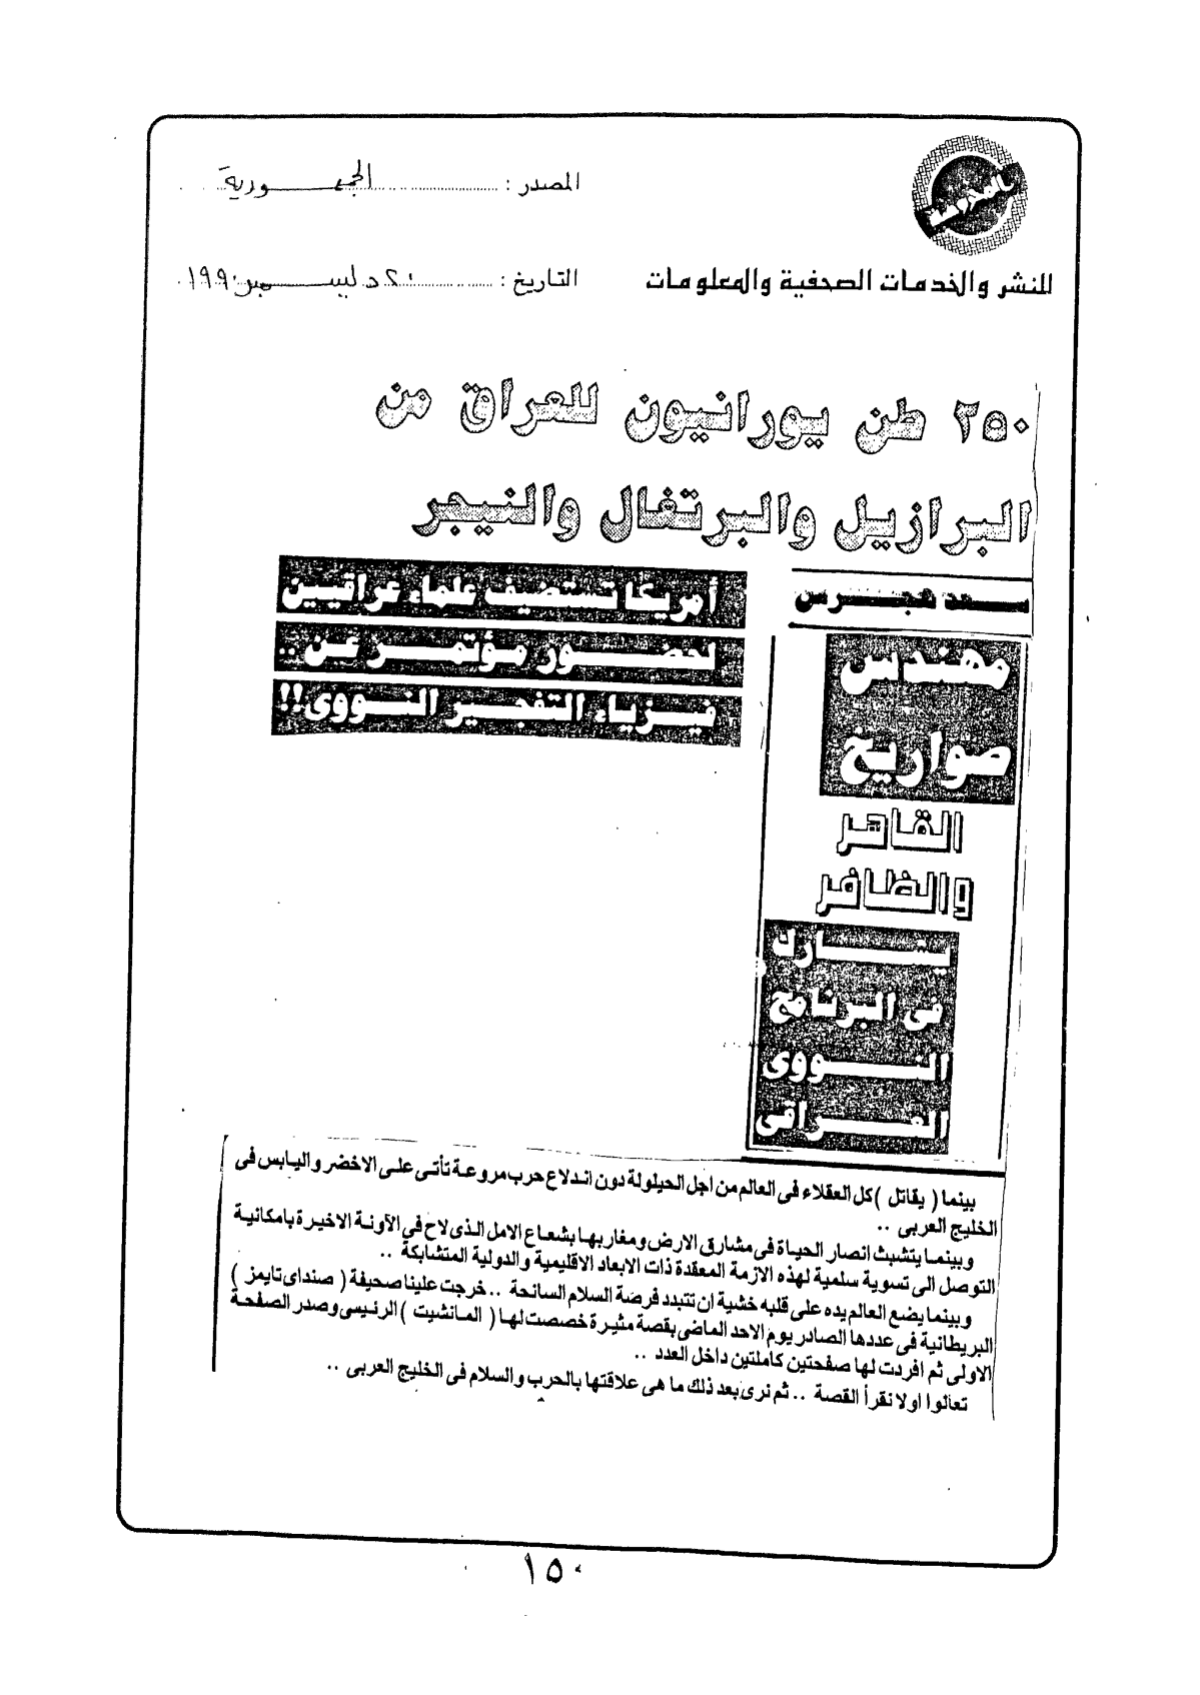 المحروسة
للنشر والخدمات الصحفية والمعلومات
المصدر : الجمهورية
التاريخ : ٢٠ ديسمبر ١٩٩٠
٢٥٠ طن يورانيون للعراق من
البرازيل والبرتغال والنيجر
سعد هجرس
أمريكا تستضيف علماء عراقيين
لحضور مؤتمر عن ..
فيزياء التفجير النووى !!
مهندس
صواريخ
القاهر
والظافر
يشارك
فى البرنامج
النووى
العراقى
بينما ( يقاتل ) كل العقلاء فى العالم من اجل الحيلولة دون اندلاع حرب مروعة تأتى على الاخضر واليابس فى
الخليج العربى ..
وبينما يتشبث انصار الحياة فى مشارق الارض ومغاربها بشعاع الامل الذى لاح فى الآونة الاخيرة بامكانية
التوصل الى تسوية سلمية لهذه الازمة المعقدة ذات الابعاد الاقليمية والدولية المتشابكة ..
وبينما يضع العالم يده على قلبه خشية ان تتبدد فرصة السلام السانحة .. خرجت علينا صحيفة ( صنداى تايمز )
البريطانية فى عددها الصادر يوم الاحد الماضى بقصة مثيرة خصصت لها ( المانشيت ) الرئيسى وصدر الصفحة
الاولى ثم افردت لها صفحتين كاملتين داخل العدد ..
تعالوا اولا نقرأ القصة .. ثم نرى بعد ذلك ما هى علاقتها بالحرب والسلام فى الخليج العربى ..
١٥٠